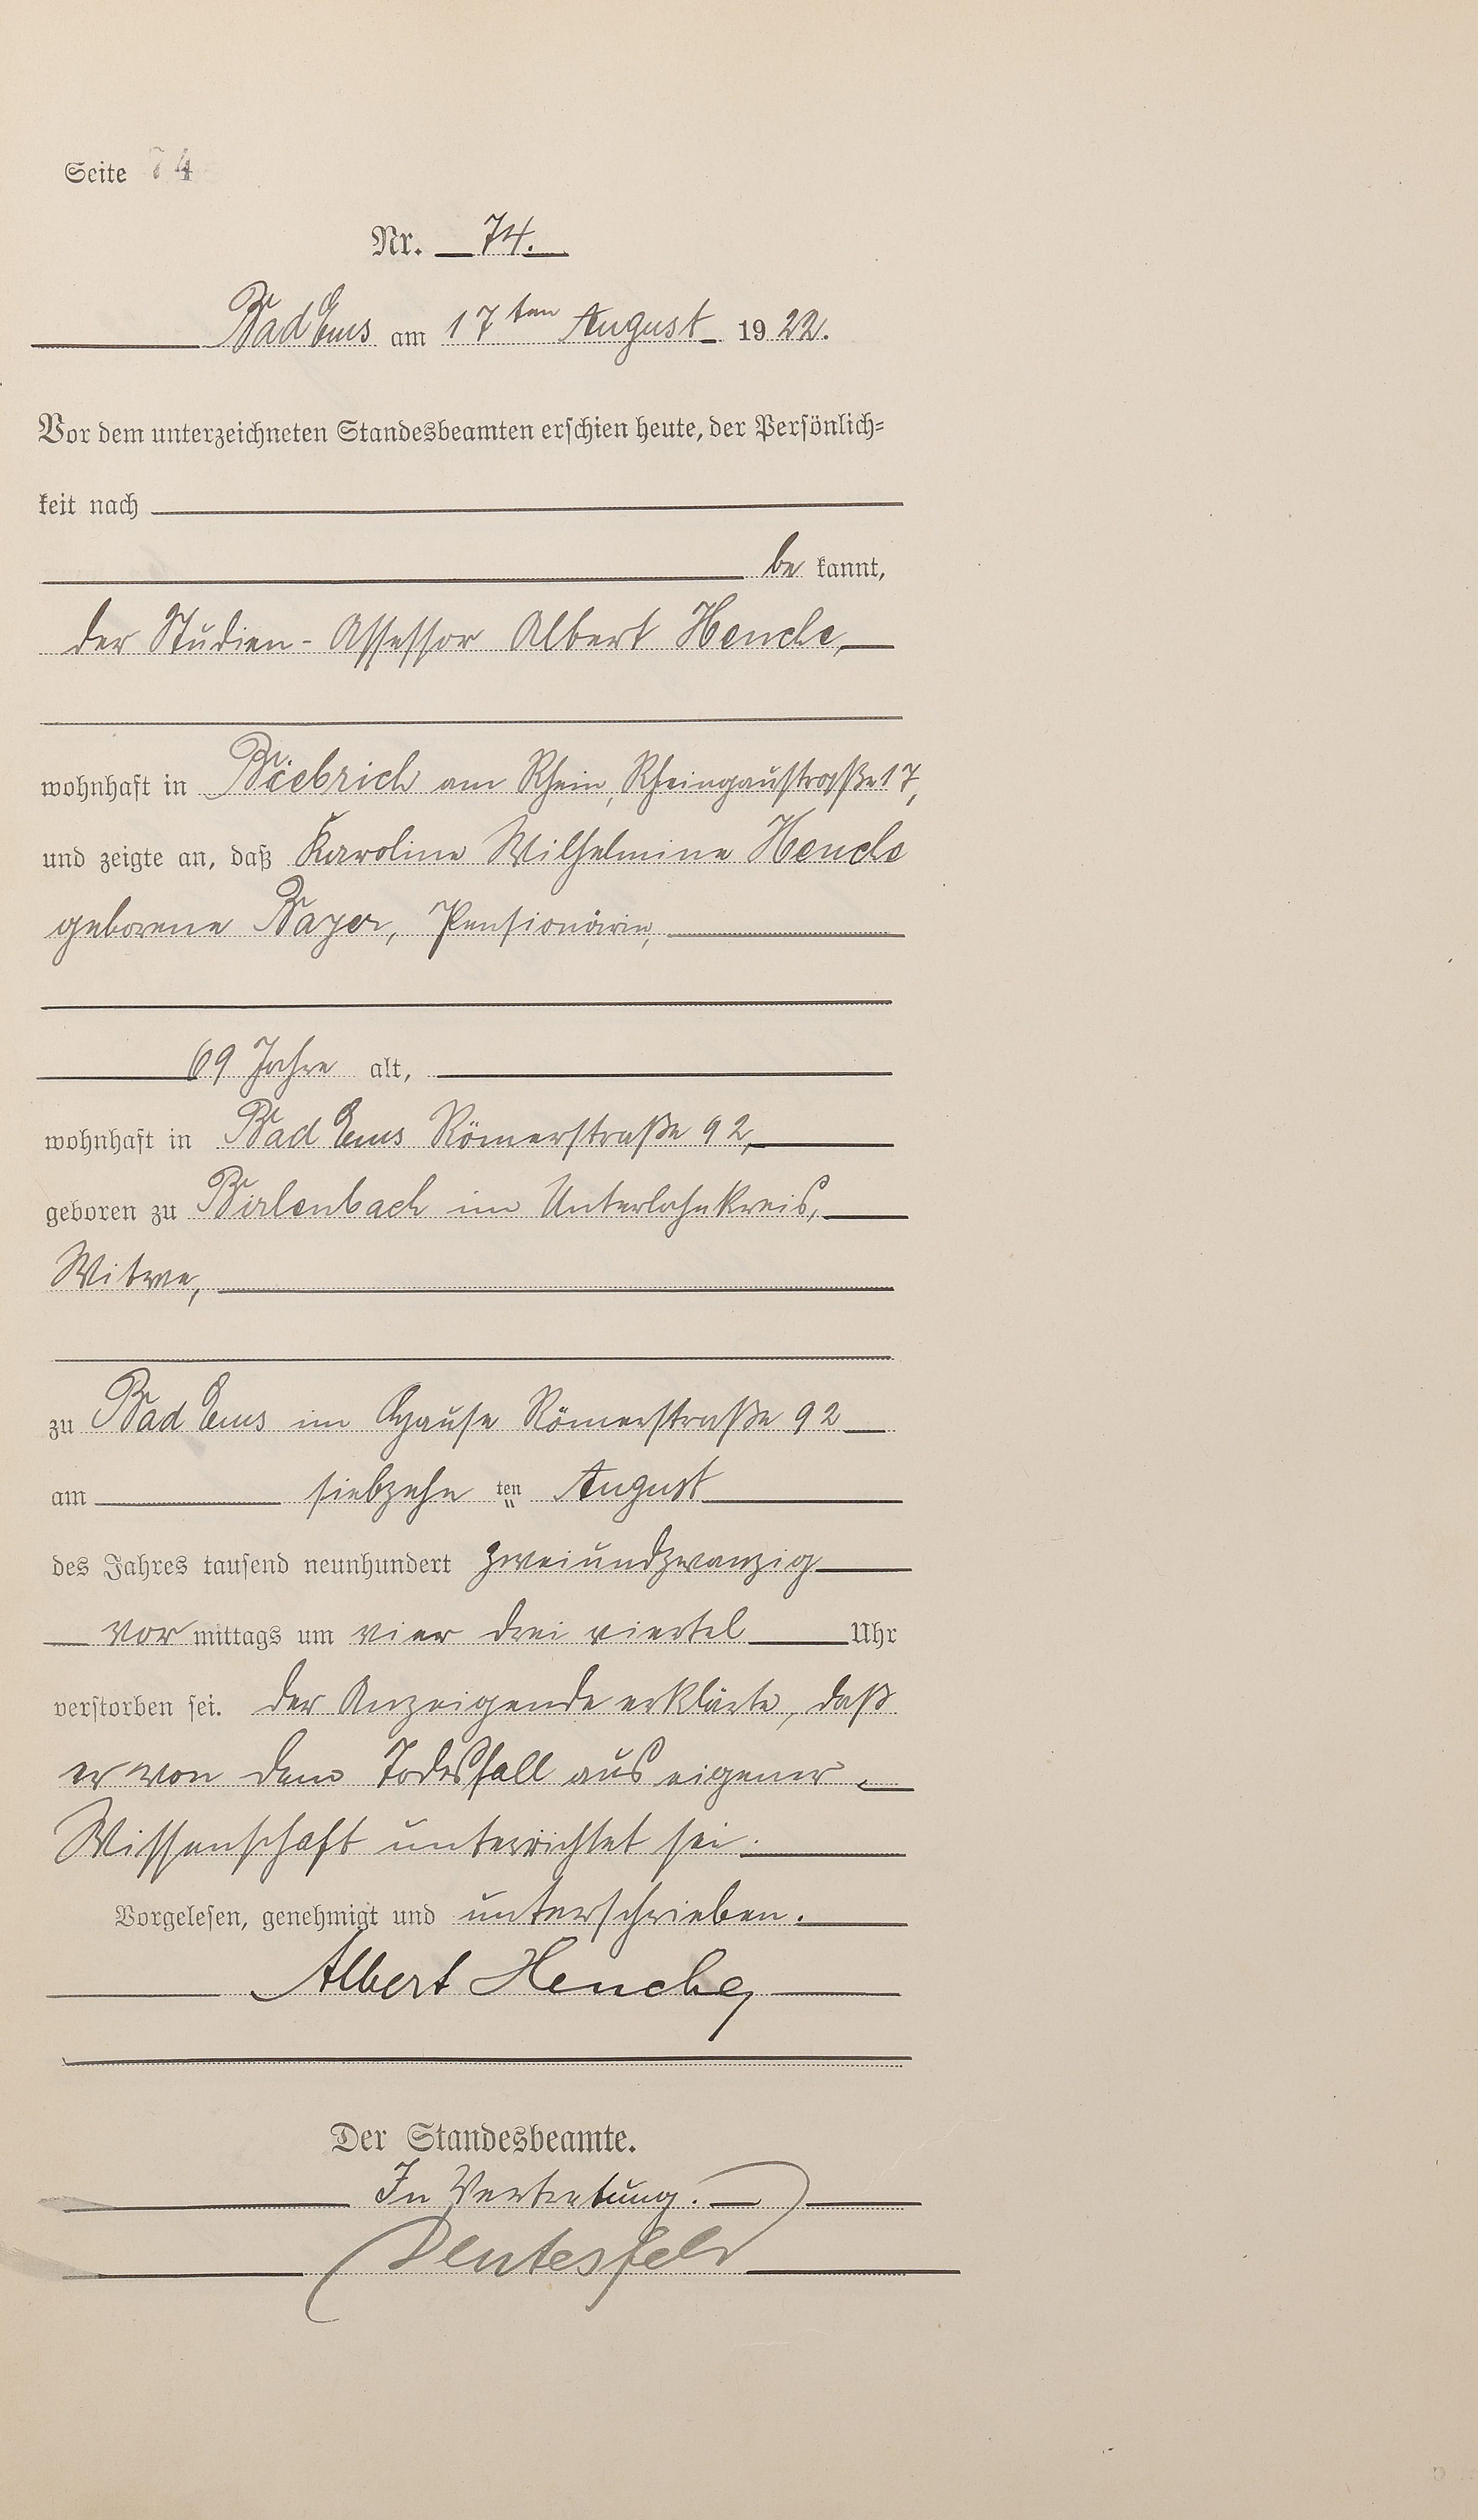 Seite 74
Nr. 74.
Bad Ems am 17ten August 1922.
Vor dem unterzeichneten Standesbeamten erschien heute, der Persönlich-
keit nach
be kannt,
der Studien-Assessor Albert Henche,
wohnhaft in Biebrich am Rhein, Rheingaustraße 17,
und zeigte an, daß Karoline Wilhelmine Henche
geborene Bayer, Pensionärin,
69 Jahre alt,
wohnhaft in Bad Ems Römerstraße 92,
geboren zu Birlenbach im Unterlahnkreis,
Witwe,
zu Bad Ems im Hause Römerstraße 92
am siebzehn ten August
des Jahres tausend neunhundert zweiundzwanzig
vor mittags um vier drei viertel Uhr
verstorben sei. Der Anzeigende erklärte, daß
er von dem Todesfall aus eigener
Wissenschaft unterrichtet sei.
Vorgelesen, genehmigt und unterschrieben.
Albert Henche
Der Standesbeamte.
In Vertretung.